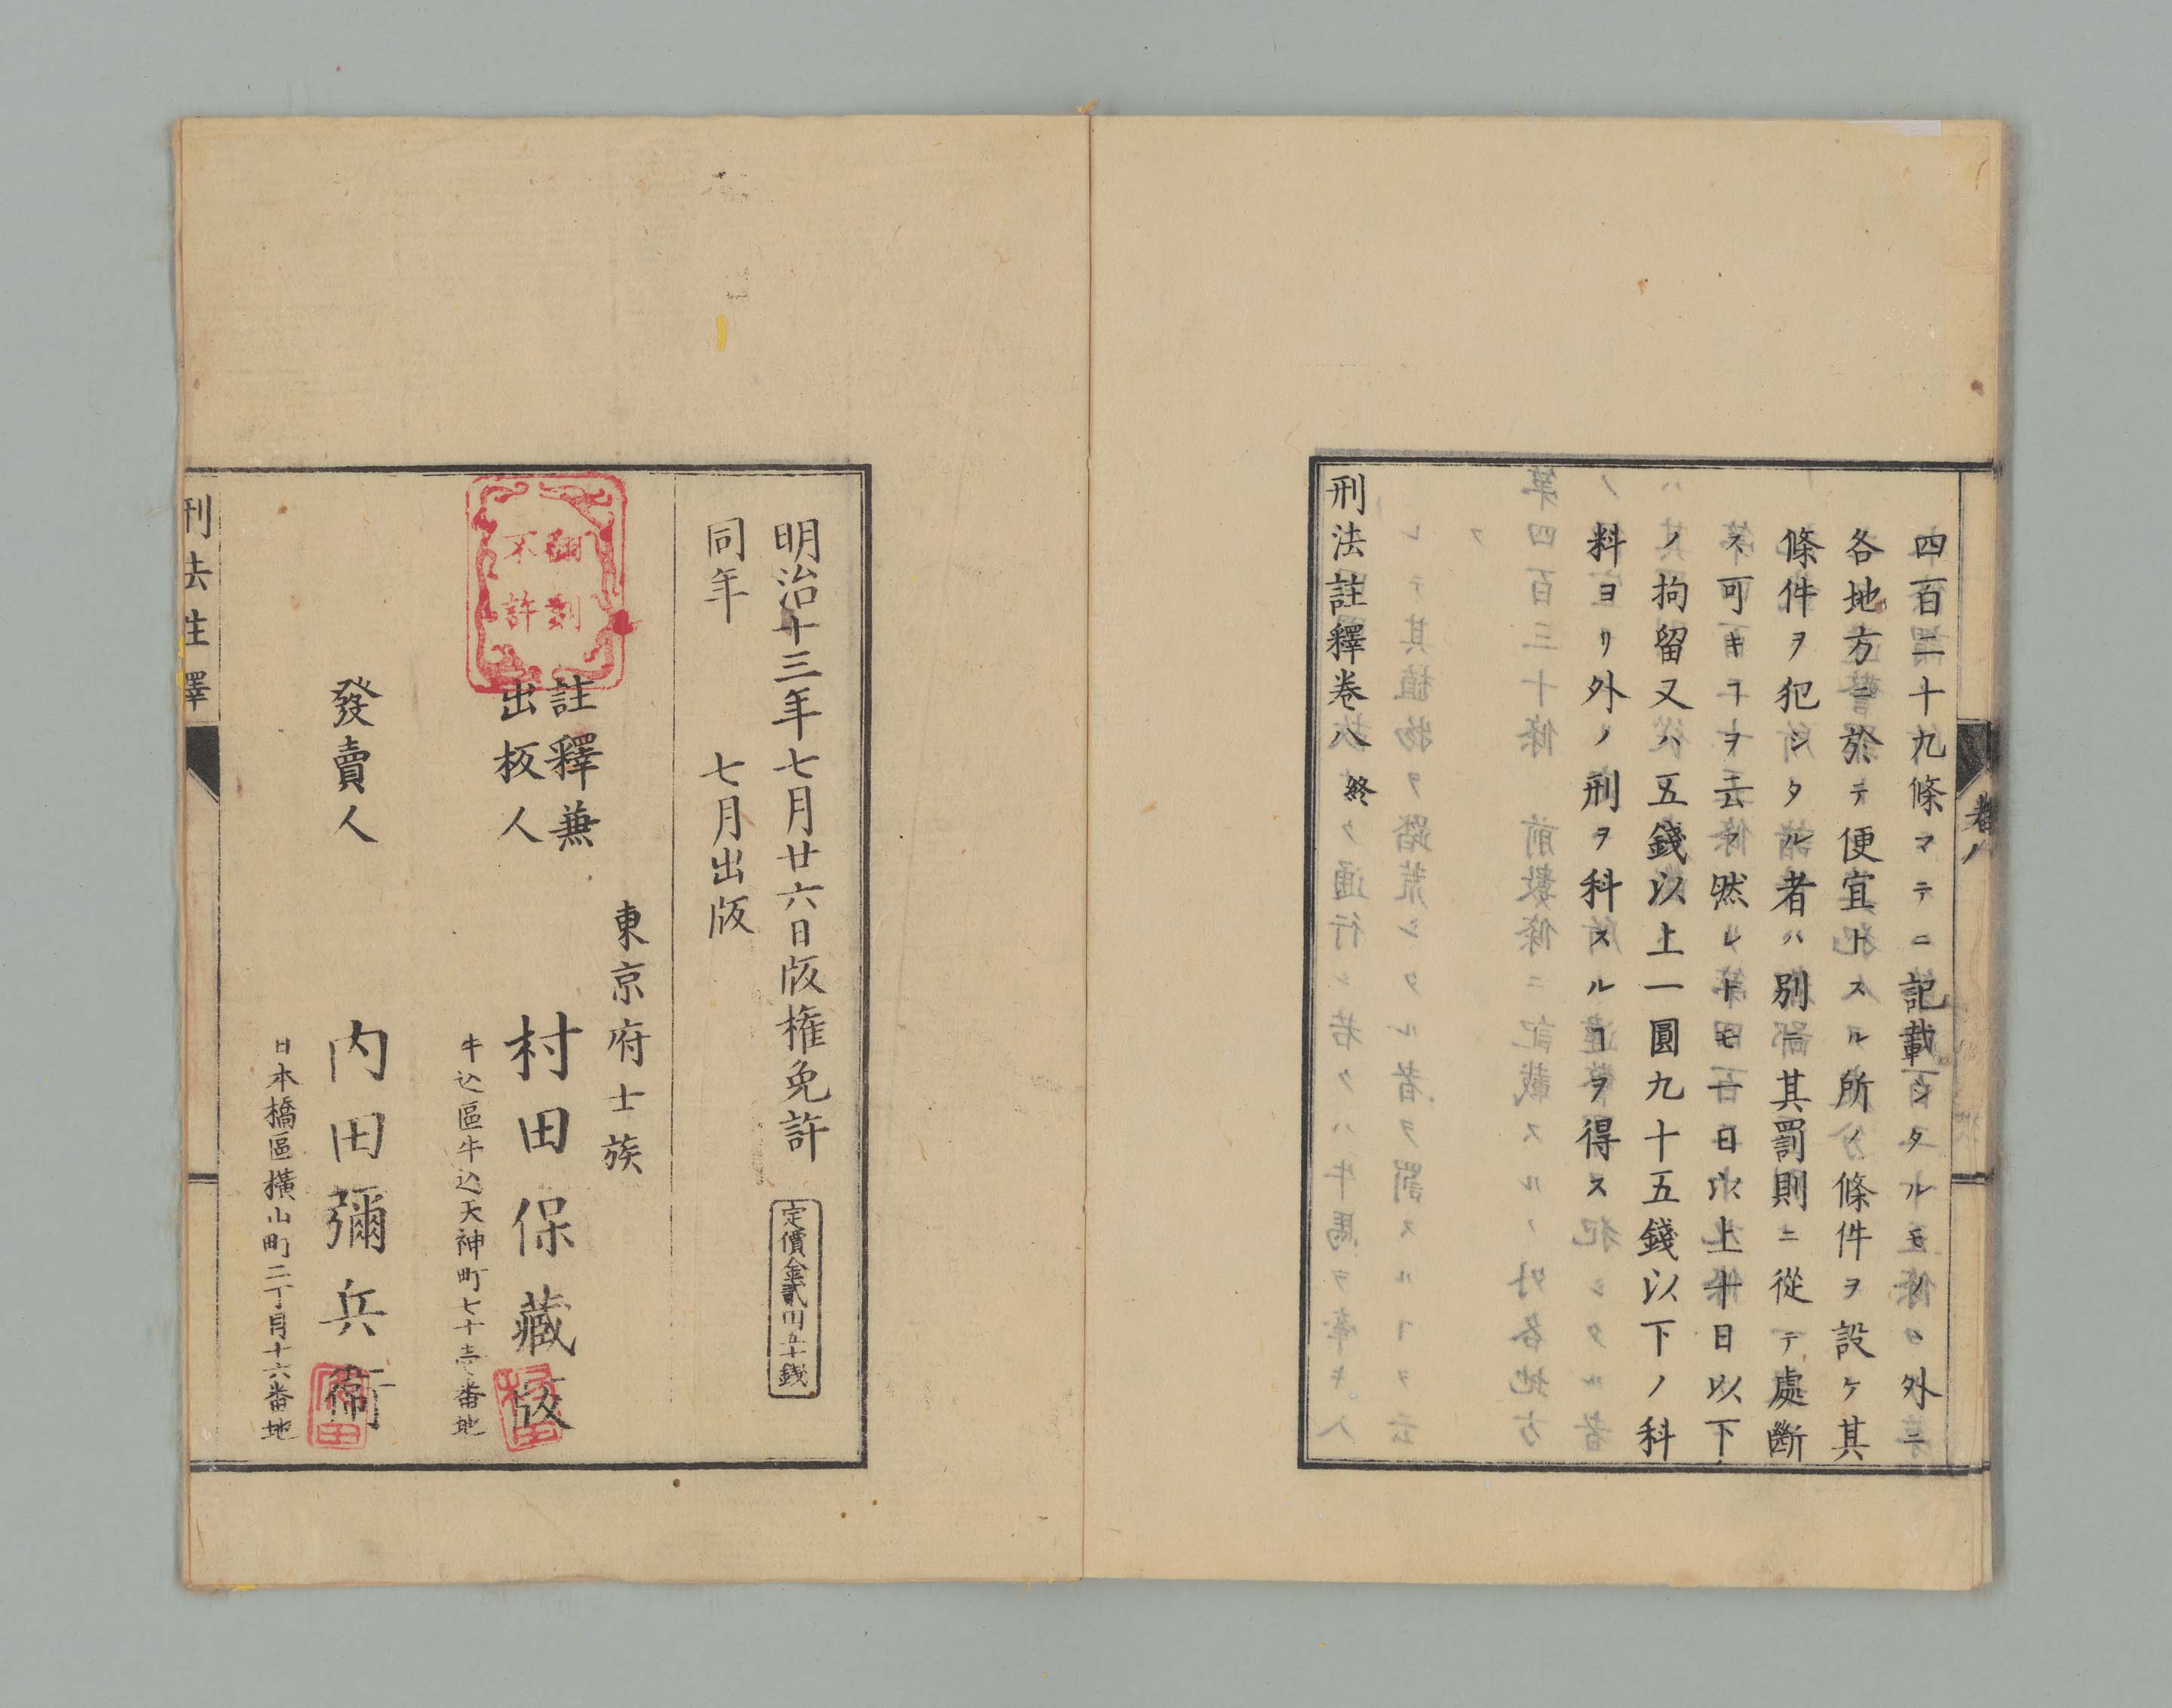 四百二十九條マテニ記載シタルモノヽ外ニ
各地方ニ於テ便宜トスル所ノ條件ヲ設ケ其
條件ヲ犯シタル者ハ別ニ其罰則ニ從テ處斷
ス可キヿヲ云フ然レトモ一日以上十日以下
ノ拘留又ハ五錢以上一圓九十五錢以下ノ科
料ヨリ外ノ刑ヲ科スルヿヲ得ス
刑法註釋卷八終
卷八
明治十三年七月廿六日版権免許
定價金貳円五十銭
同年 七月出版
翻刻
不許
東京府士族
註釋兼
出板人
村田保藏版
牛込區牛込天神町七十壱番地
發賣人
内田彌兵衛
日本橋區横山町二丁目十六番地
刑法註釋